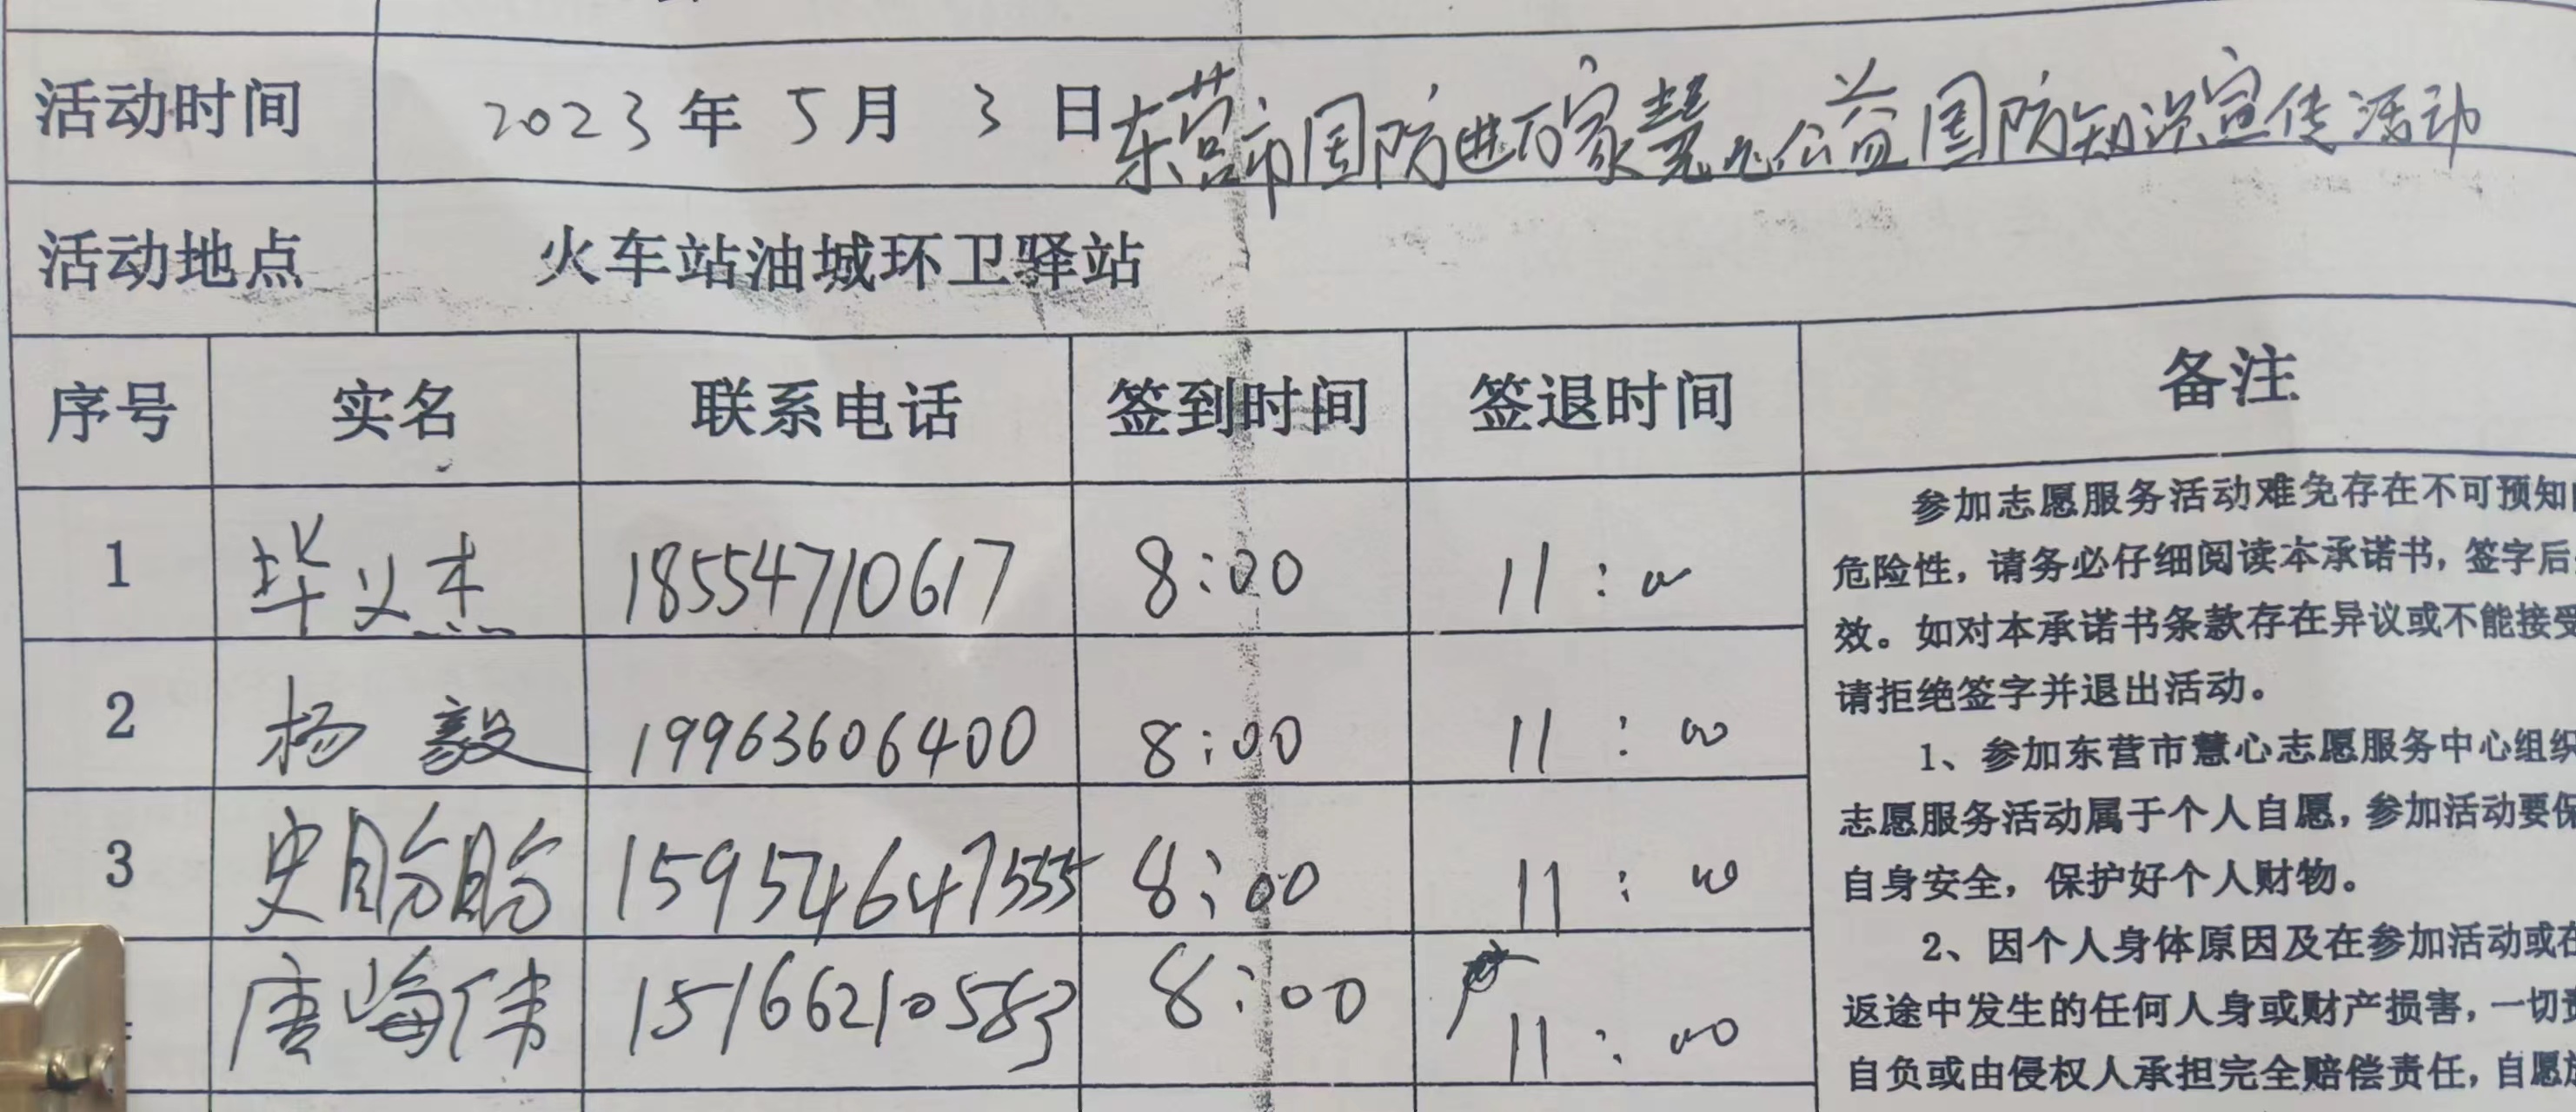 活动时间 2023年5月3日 东营市国防进万家慧心公益国防知识宣传活动
活动地点 火车站油城环卫驿站
序号 实名 联系电话 签到时间 签退时间 备注
1 毕义杰 18554710617 8:00 11:00
2 杨毅 19963606400 8:00 11:00
3 史盼盼 15954647555 8:00 11:00
唐海伟 15166210583 8:00 11:00
参加志愿服务活动难免存在不可预知
危险性，请务必仔细阅读本承诺书，签字后
效。如对本承诺书条款存在异议或不能接受
请拒绝签字并退出活动。
1、参加东营市慧心志愿服务中心组织
志愿服务活动属于个人自愿，参加活动要保
自身安全，保护好个人财物。
2、因个人身体原因及在参加活动或在
返途中发生的任何人身或财产损害，一切责
自负或由侵权人承担完全赔偿责任，自愿放